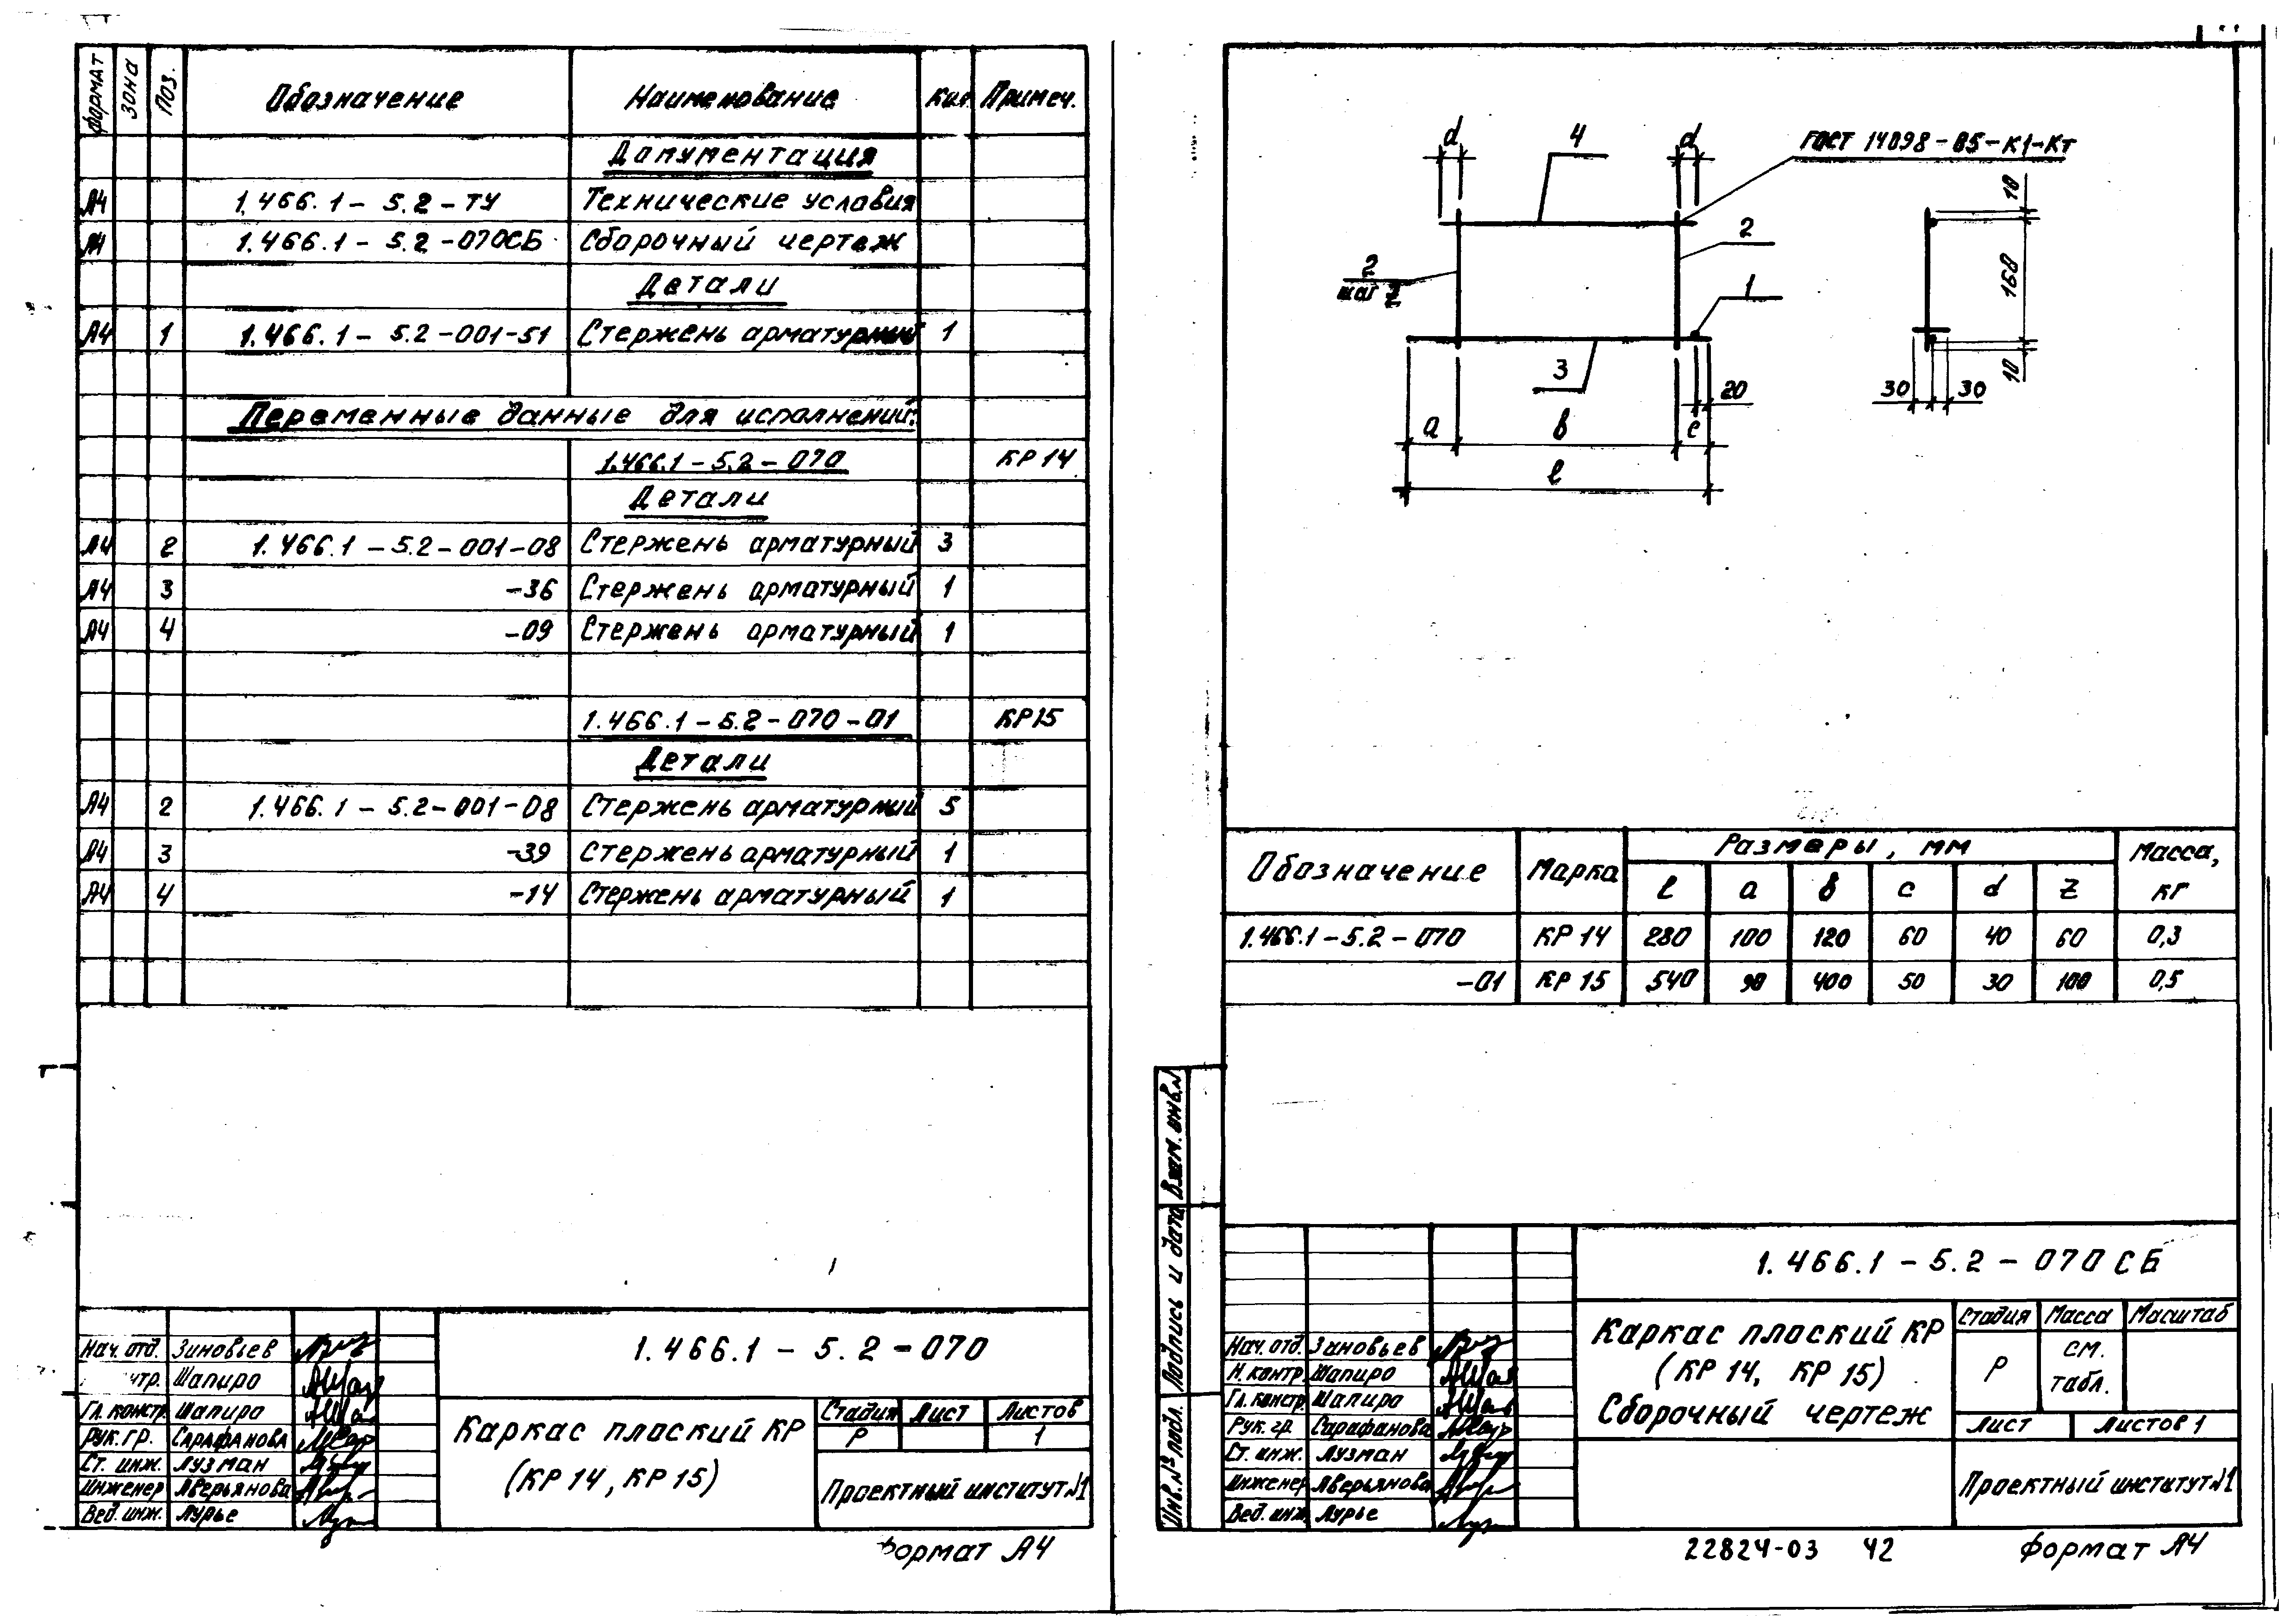 Формат Зона Поз. Обозначение Наименование Кол. Примеч.
Документация
А4 1.466.1-5.2-ТУ Технические условия
А4 1.466.1-5.2-070СБ Сборочный чертеж
Детали
А4 1 1.466.1-5.2-001-51 Стержень арматурный 1
Переменные данные для исполнений:
1.466.1-5.2-070 КР14
Детали
А4 2 1.466.1-5.2-001-08 Стержень арматурный 3
А4 3 -36 Стержень арматурный 1
А4 4 -09 Стержень арматурный 1
1.466.1-5.2-070-01 КР15
Детали
А4 2 1.466.1-5.2-001-08 Стержень арматурный 5
А4 3 -39 Стержень арматурный 1
А4 4 -14 Стержень арматурный 1
1.466.1-5.2-070
Нач. отд. Зиновьев
нтр. Шапиро
Гл. констр. Шапиро
Рук. гр. Сарафанова
Ст. инж. Лузман
Инженер Аверьянова
Вед. инж. Лурье
Каркас плоский КР
(КР14, КР15)
Стадия Лист Листов
Р 1
Проектный институт №1
Формат А4
d 4 d ГОСТ 14098-85-К1-Кт
2
2
шаг z
1
3
20
a в c
l
10
160
10
30 30
Обозначение Марка Размеры, мм Масса, кг
l a в c d z
1.466.1-5.2-070 КР14 280 100 120 60 40 60 0,3
-01 КР15 540 90 400 50 30 100 0,5
Взам. инв. №
Подпись и дата
Инв. № подл.
1.466.1-5.2-070СБ
Нач. отд. Зиновьев
Н. контр. Шапиро
Гл. констр. Шапиро
Рук. гр. Сарафанова
Ст. инж. Лузман
Инженер Аверьянова
Вед. инж. Лурье
Каркас плоский КР
(КР14, КР15)
Сборочный чертеж
Стадия Масса Масштаб
Р см. табл.
Лист Листов 1
Проектный институт №1
22824-03 42 Формат А4